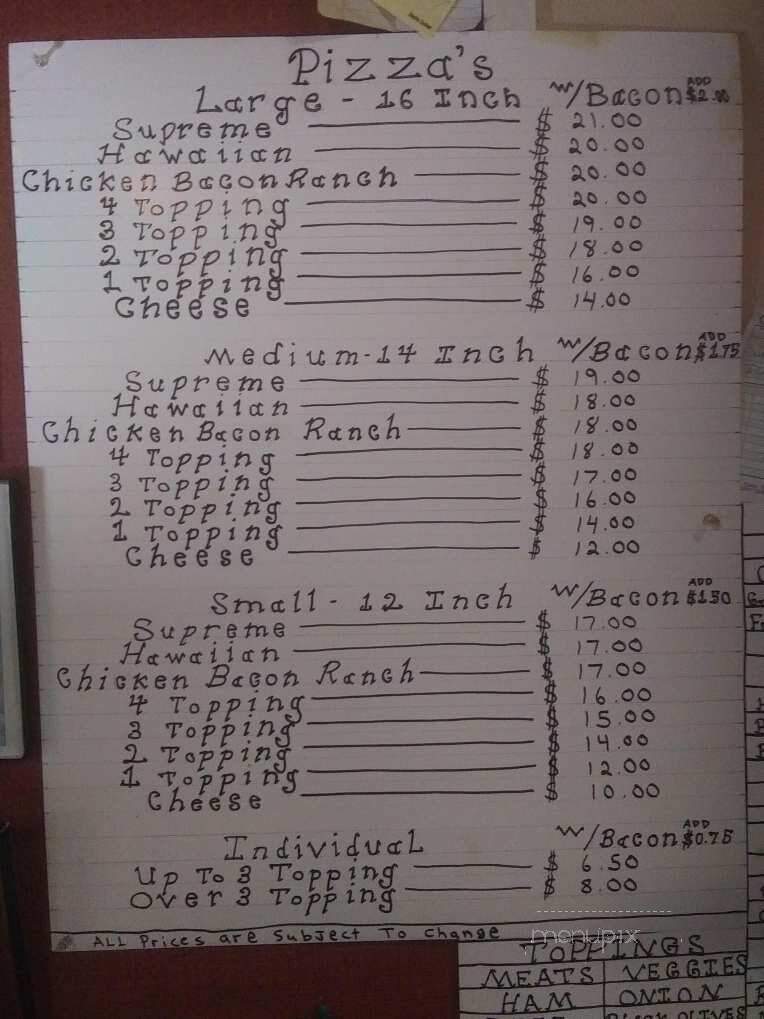 Pizza's
Large - 16 Inch w/Bacon ADD $2.00
Supreme $ 21.00
Hawaiian $ 20.00
Chicken Bacon Ranch $ 20.00
4 Topping $ 20.00
3 Topping $ 19.00
2 Topping $ 18.00
1 Topping $ 16.00
Cheese $ 14.00
Medium - 14 Inch w/Bacon ADD $1.75
Supreme $ 19.00
Hawaiian $ 18.00
Chicken Bacon Ranch $ 18.00
4 Topping $ 18.00
3 Topping $ 17.00
2 Topping $ 16.00
1 Topping $ 14.00
Cheese $ 12.00
Small - 12 Inch w/Bacon ADD $1.50
Supreme $ 17.00
Hawaiian $ 17.00
Chicken Bacon Ranch $ 17.00
4 Topping $ 16.00
3 Topping $ 15.00
2 Topping $ 14.00
1 Topping $ 12.00
Cheese $ 10.00
Individual w/Bacon ADD $0.75
Up To 3 Topping $ 6.50
Over 3 Topping $ 8.00
ALL Prices are Subject To Change
menupix
TOPPINGS
MEATS VEGGIES
HAM ONION
Black OLIVES